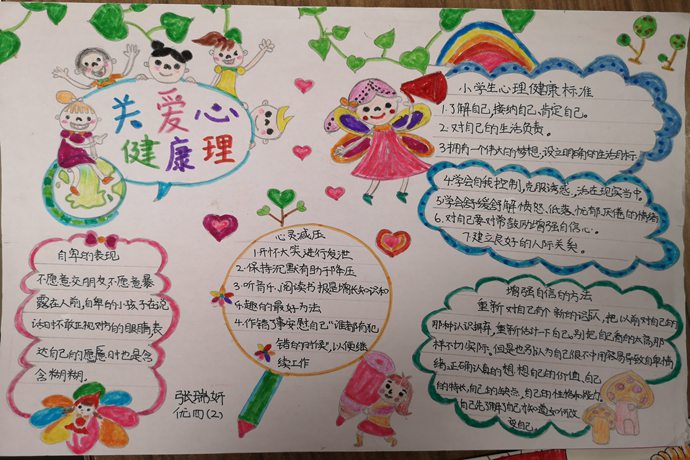 关爱心
健康理
小学生心理健康标准
1.了解自己,接纳自己,肯定自己。
2.对自己的生活负责。
3.拥有一个伟大的梦想,设立明确的生活目标
4.学会自我控制,克服诱惑,活在现实当中。
5.学会舒缓舒解愤怒、低落、忧郁厌倦的情绪
6.对自己要时常鼓励增强自信心。
7.建立良好的人际关系。
自卑的表现
不愿意交朋友不愿意暴
露在人前,自卑的小孩子在说
话时不敢正视对方的眼睛,表
达自己的意愿时也是含
含糊糊.
心灵减压
1.开怀大笑进行发泄
2.保持沉默有助于降压
3.听音乐、阅读书报是增长知识和
乐趣的最好方法
4.作错了事安慰自己"谁都有犯
错的时候",以便继
续工作
张瑞妍
优四(2)
增强自信的方法
重新对自己有个新的认识,把以前对自己的
那种认识摒弃,重新估计一下自己。别把自己看的太高,那
样不切实际。但是也别认为自己很不中用容易导致自卑情
绪。正确认真的想想自己的价值、自己
的特长,自己的缺点,自己的性格和能力。
自己先了解了自己才知道如何改
变自己.